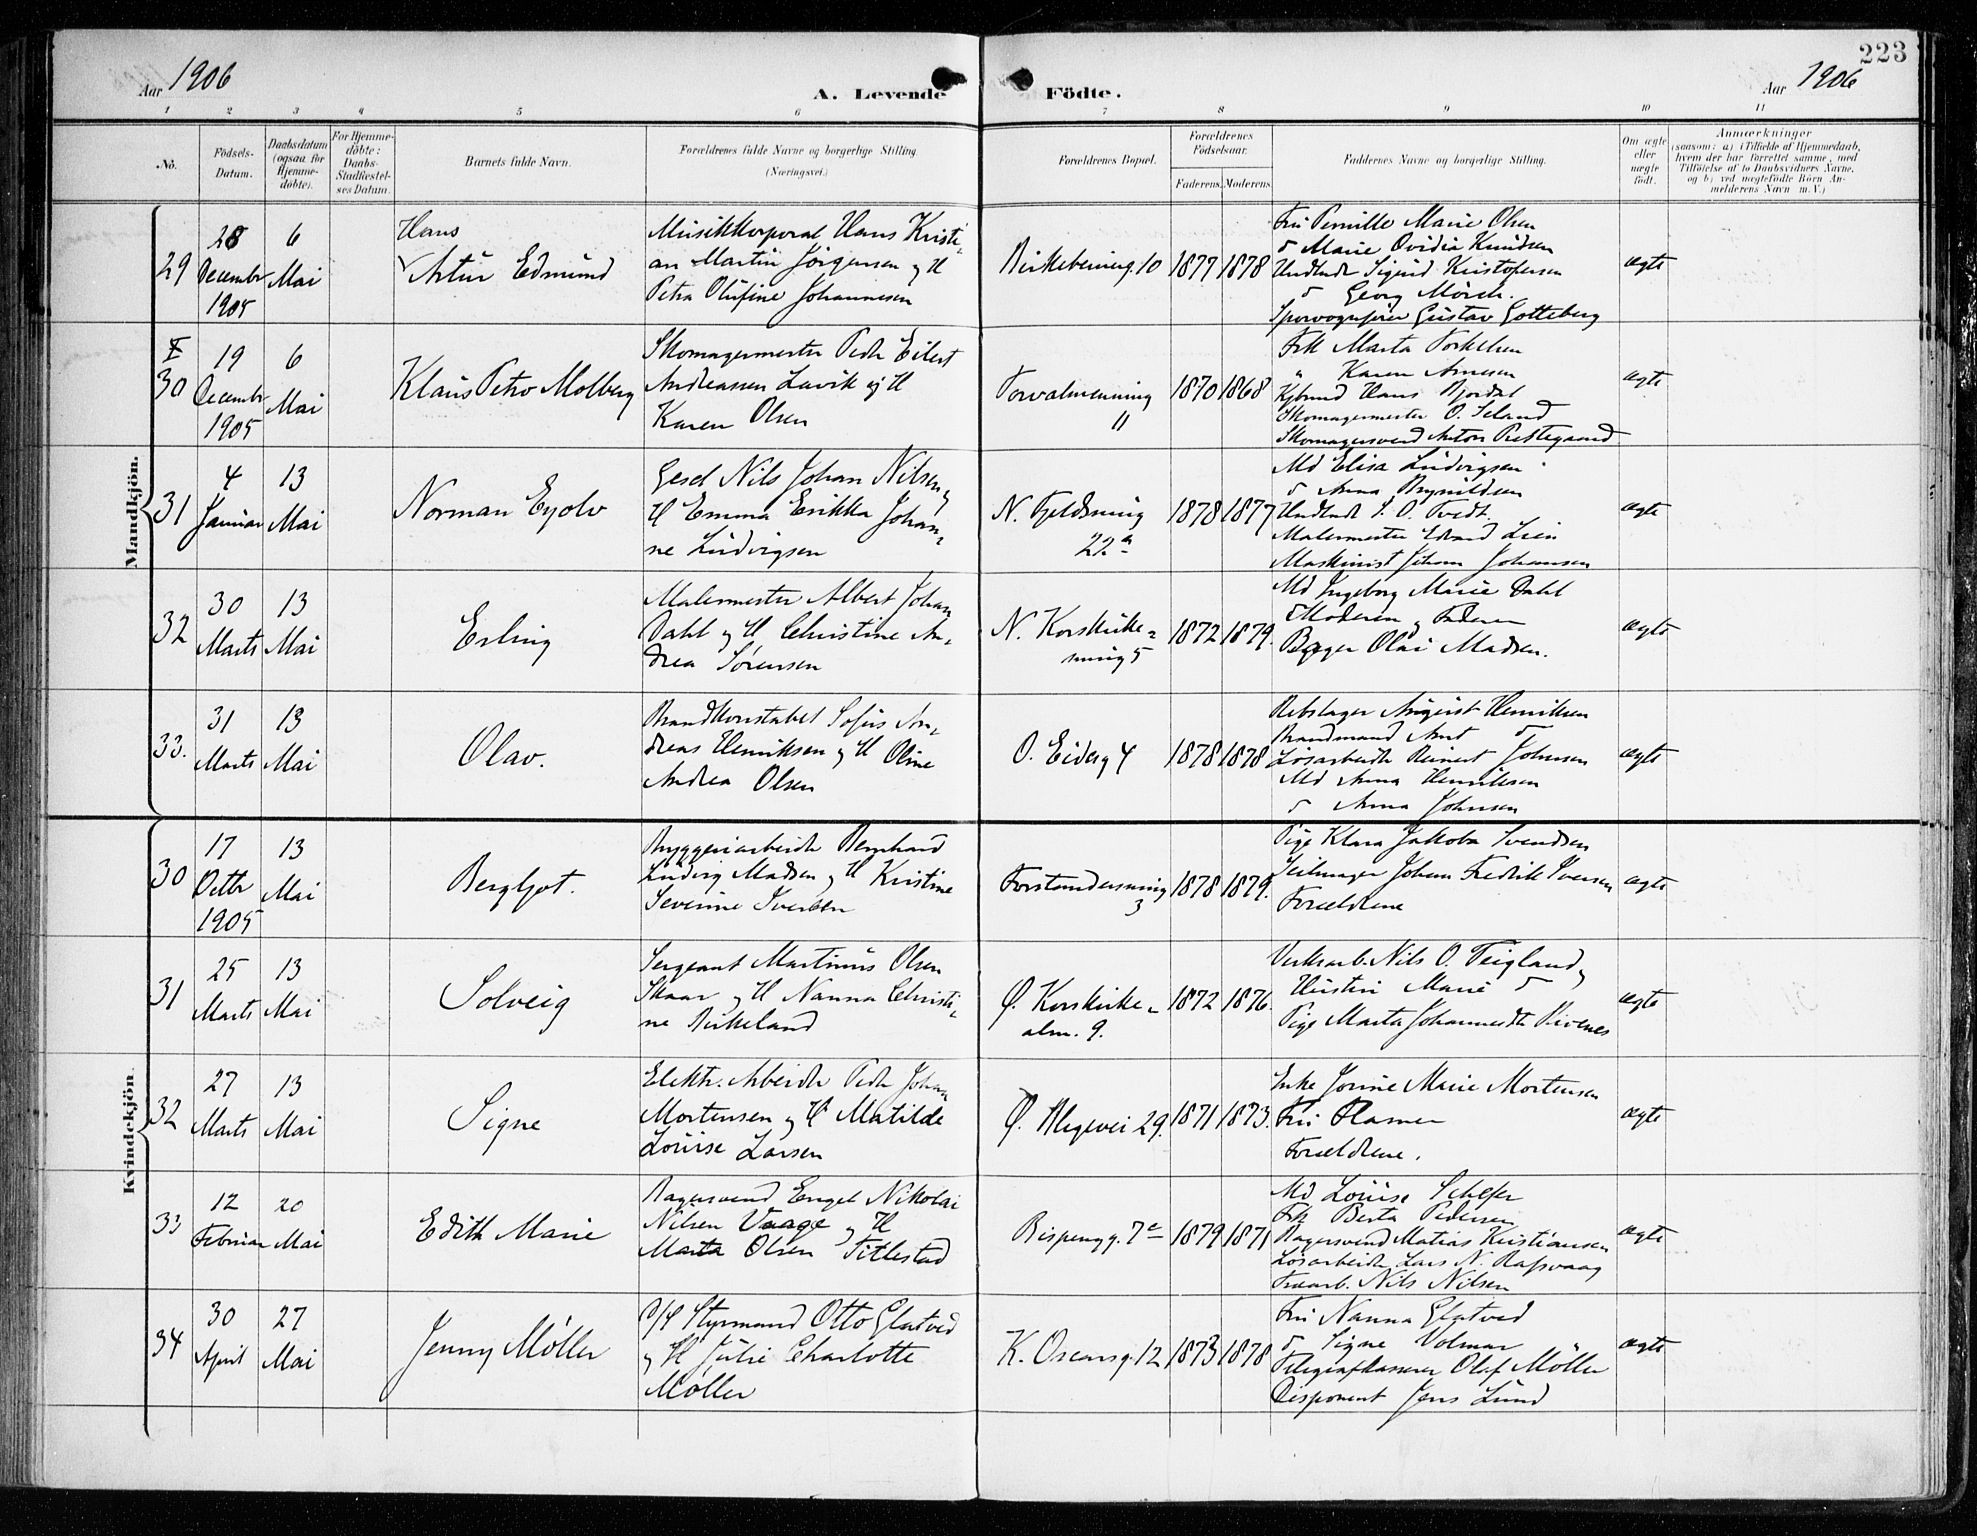 223
Aar 1906
A. Levende Födte.
Aar 1906
1 2 3 4 5 6 7 8 9 10 11
No.
Födsels-
Datum.
Daabsdatum
(ogsaa for
Hjemme-
döbte).
For Hjemme-
döbte:
Daabs-
Stadfæstel-
ses Datum.
Barnets fulde Navn.
Forældrenes fulde Navne og borgerlige Stilling.
(Næringsvei.)
Forældrenes Bopæl.
Forældrenes
Födselsaar.
Faderens. Moderens.
Faddernes Navne og borgerlige Stilling.
Om ægte
eller
uægte
födt.
Anmærkninger
(saasom: a) i Tilfælde af Hjemmedaab,
hvem der har forrettet samme, med
Tilföielse af to Daabsvidners Navne,
og b) ved uægtefödte Börn An-
melderens Navn m. V.)
Mandkjön.
29
Decembr
1905
6
Mai
Hans
Artur Edmund
Musikkorporal Hans Kristi-
an Martin Jörgensen og H
Petra Olufine Johannesen
Birkebeinerg. 10
1877 1878
Fru Pernille Marie Olsen
Marie Ovidia Knudsen
Sigurd Kristofersen
Georg Mörch.
Sporvognsfører Gustav Gotteberg
ægte
30
19
Decembr
1905
6
Mai
Klaus Petro Molberg
Skomagermester Peder Eilert
Andreassen Lavik og H
Karen Olsen
Torvalmenning
11
1870 1868
Frk Marta Torkelsen
" Karen Arnesen
Hans Bjordal
Skomagermester O. Seland
Skomagersvend Anton Prestegaard
ægte
31
4
Januar
13
Mai
Norman Eyolv
Gesel Nils Johan Nilsen og
H Emma Erikka Johan-
ne Ludvigsen
N. Fjeldsmug
22 a
1878 1877
Md Elisa Ludvigsen
Anna Brynildsen
Tvedt
Malermester Edvard Lien
Maskinist Johan Johansen
ægte
32
30
Marts
13
Mai
Erling
Malermester Albert Johan
Dahl og H Christine An-
drea Sørensen
N. Korskirke-
smug 5
1872 1879.
Md Ingeborg Marie Dahl
Moderen og Faderen
Bager Olai Madsen.
ægte
33.
31
Marts
13
Mai
Olav.
Brandkonstabel Sofus An-
dreas Henriksen og H Oline
Andrea Olsen
O. Eiderg 4
1878 1878
Rebslager August Henriksen
Brandmand Arnt
Løsarbeider Reinert Johnsen
Md Anna Henriksen
Anna Johnsen
ægte
Kvindekjön.
30
17
Octbr
1905
13
Mai
Bergljot.
Bryggeriarbeider Bernhard
Ludvig Madsen og H Kristine
Severine Iversen
Forstandersmug
3
1878 1879.
Pige Klara Jakoba Svendsen
Seilmager Johan Fredrik Iversen
Forældrene
ægte
31
25
Marts
13
Mai
Solveig
Sergeant Martinus Olsen
Skaar og H Nanna Christi-
ne Birkeland
Ø. Korskirke-
alm. 9.
1872 1876.
Verksarb. Nils O. Teigland og
Hustru Marie
Pige Marta Johannesdtr
ægte
32
27
Marts
13
Mai
Signe
Elektr. Arbeider Peder Johan
Mortensen og H Matilde
Louise Larsen
Ø. Blegevei 29.
1871 1873.
Enke Jorine Marie Mortensen
Fru Hamer
Forældrene.
ægte
33
12
Februar
20
Mai
Edith Marie
Bagersvend Engel Nikolai
Nilsen Vaage og H
Marta Olsen Titlestad
Bispengg. 7 c
1879 1871
Md Louise Schefer
Frk Berta Pedersen
Bagersvend Matias Kristiansen
Løsarbeider Lars N.
Nils Nilsen
ægte
34
30
April
27
Mai
Jenny Møller
D/S Styrmand Otto Glatved
og H Julie Charlotte
Møller
K. Oscarsg. 12
1873 1878
Fru Nanna Glatved
Signe Volmar
Telegrafkasserer Olaf Möller
Disponent Jens Lund
ægte